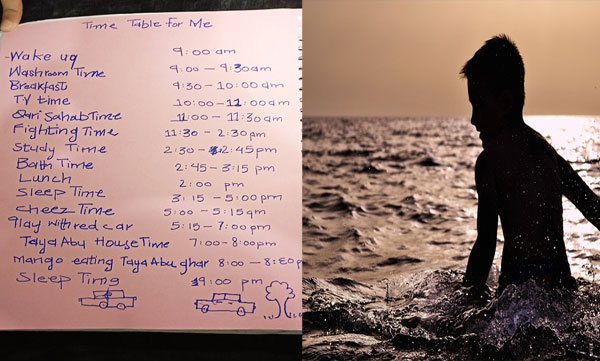 Time Table for Me
Wake up 9:00 am
Washroom Time 9:00 – 9:30am
Breakfast 9:30 – 10:00 am
TV time 10:00 – 11:00am
Qari Sahab Time 11:00 – 11:30am
Fighting Time 11:30 – 2:30pm
Study Time 2:30 – 2:45pm
Bath Time 2:45 – 3:15 pm
Lunch 2:00 pm
Sleep Time 3:15 – 5:00pm
cheez Time 5:00 – 5:15am
Play with red car 5:15 – 7:00pm
Taya Abu House Time 7:00 – 8:00pm
Mango eating Taya Abu ghar 8:00 – 8:50 p
Sleep Time 9:00 pm